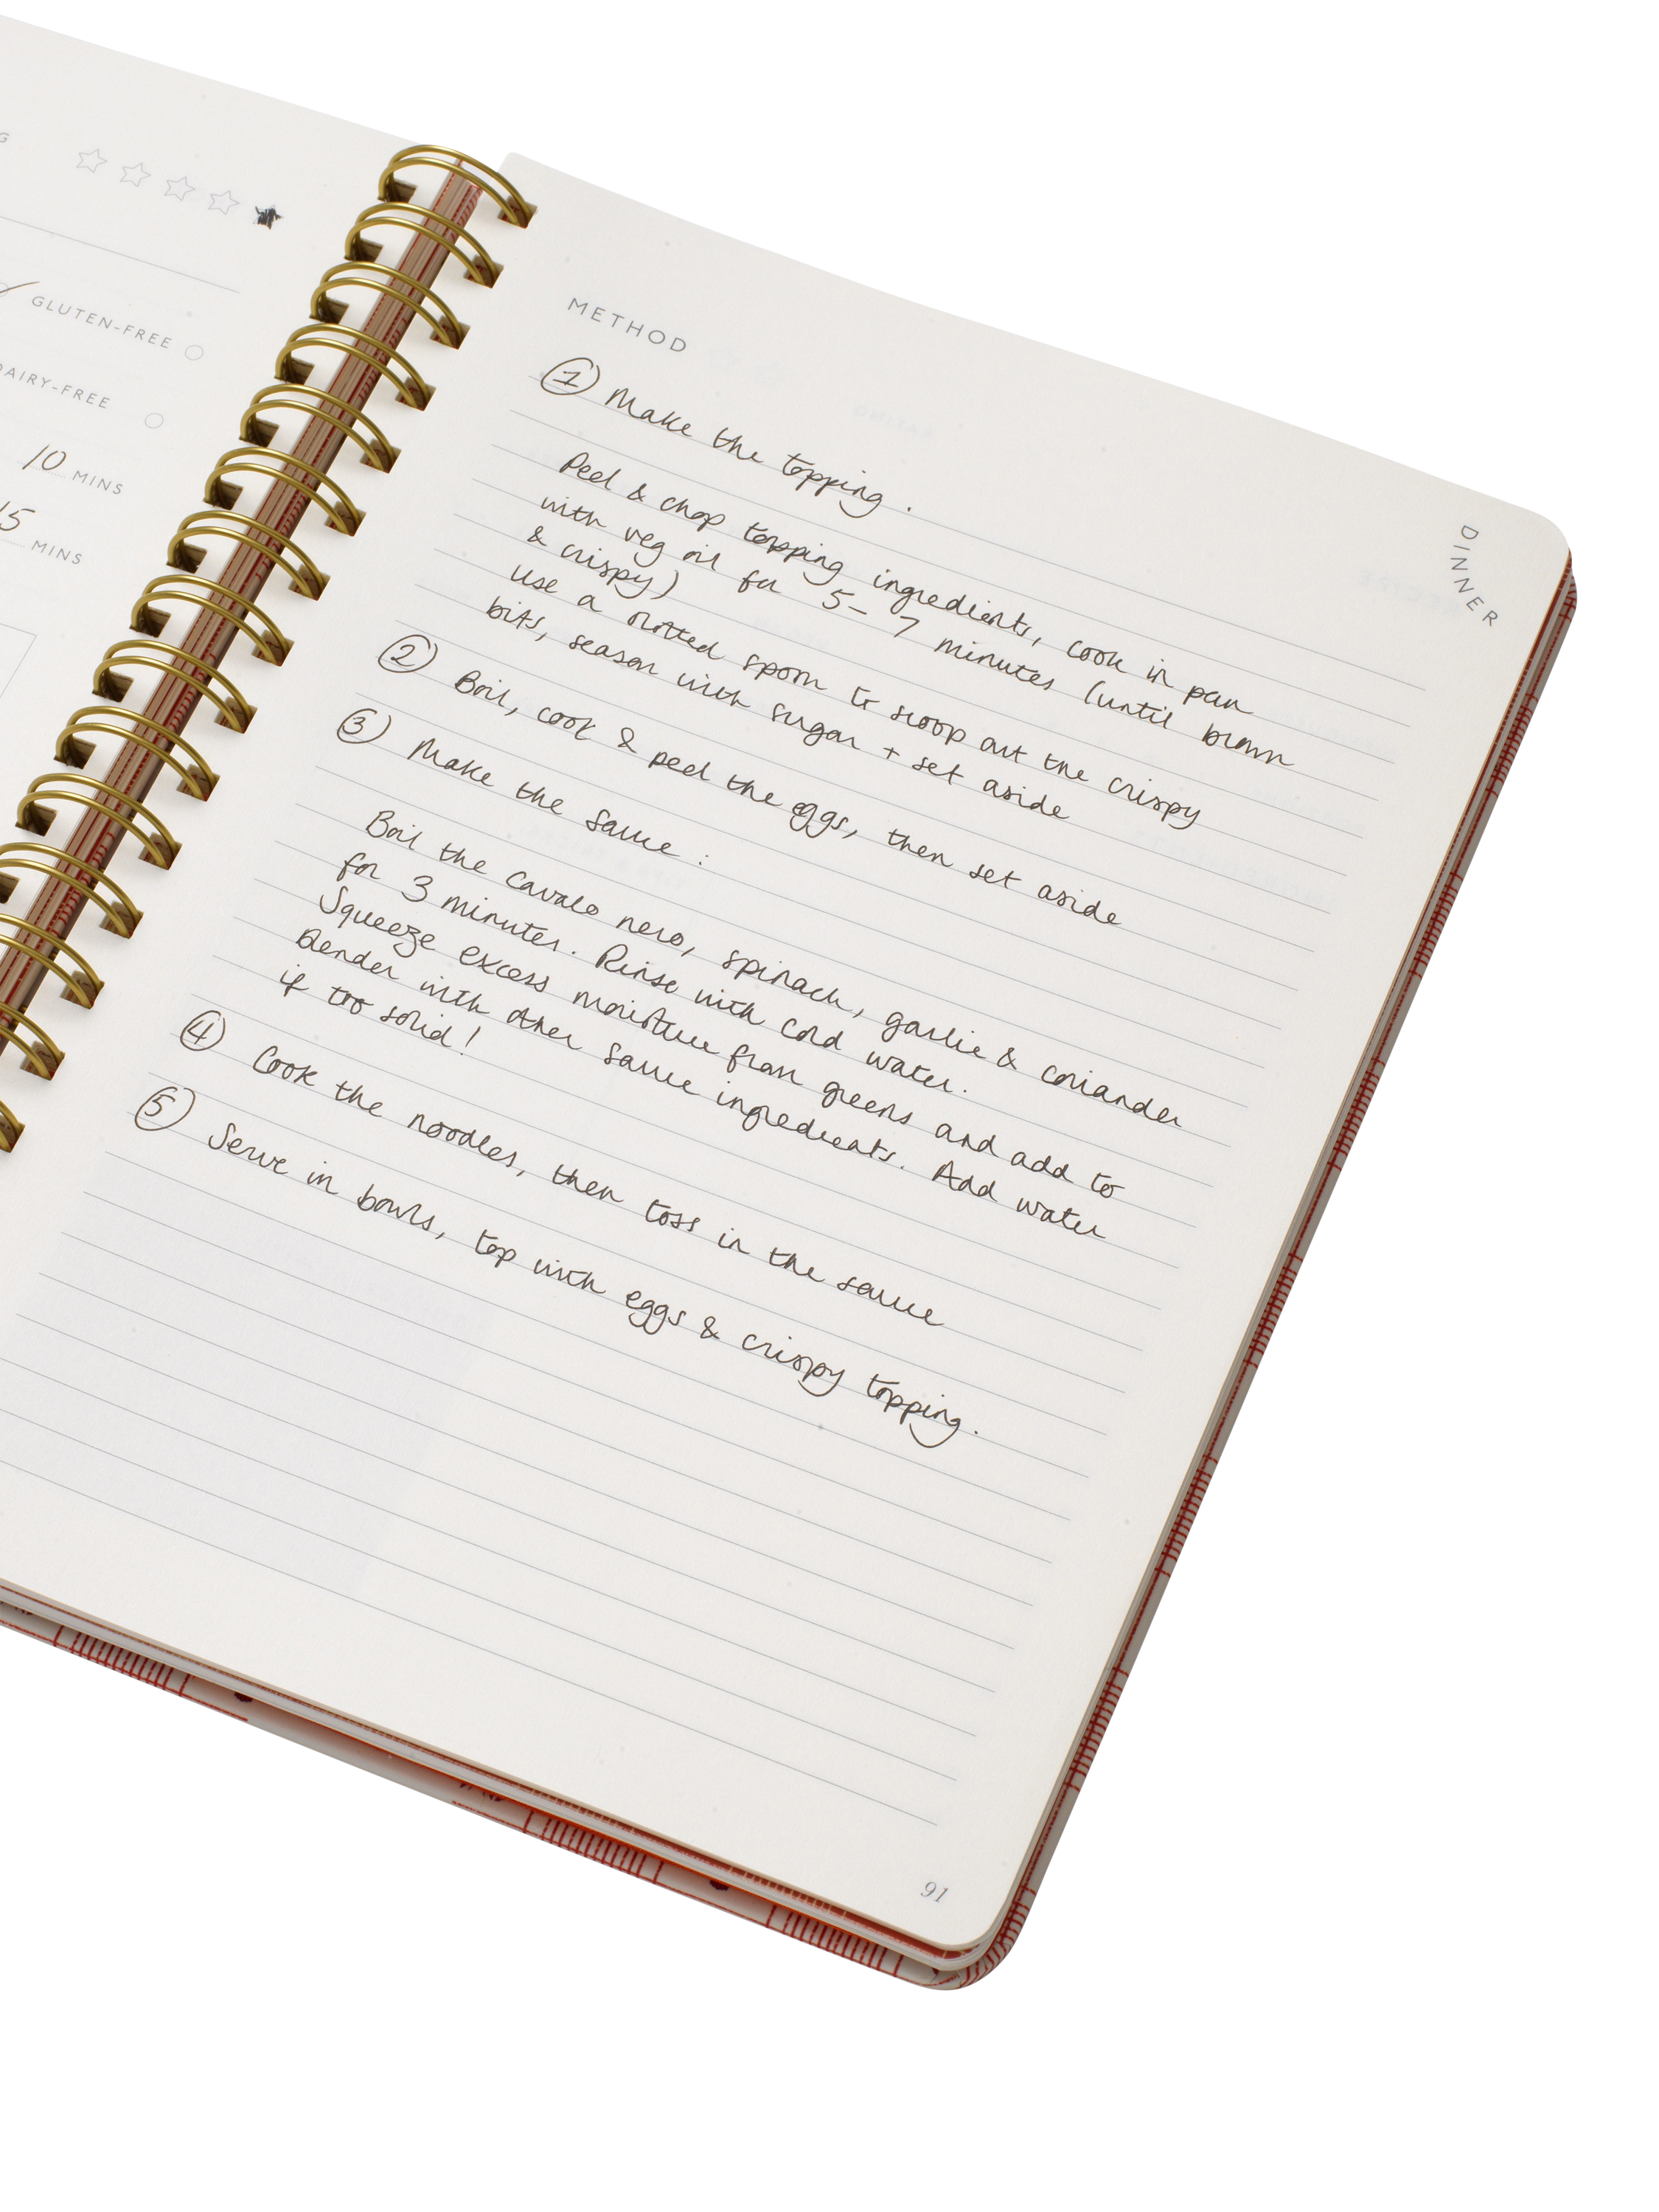 G
GLUTEN-FREE
DAIRY-FREE
10 MINS
15 MINS
METHOD
① Make the topping.
Peel & chop topping ingredients, cook in pan
with veg oil for 5-7 minutes (until brown
& crispy)
use a slotted spoon to scoop out the crispy
bits, season with sugar + set aside
② Boil, cook & peel the eggs, then set aside
③ Make the sauce:
Boil the cavalo nero, spinach, garlic & coriander
for 3 minutes. Rinse with cold water.
Squeeze excess moisture from greens and add to
blender with other sauce ingredients. Add water
if too solid!
④ Cook the noodles, then toss in the sauce
⑤ Serve in bowls, top with eggs & crispy topping.
DINNER
91